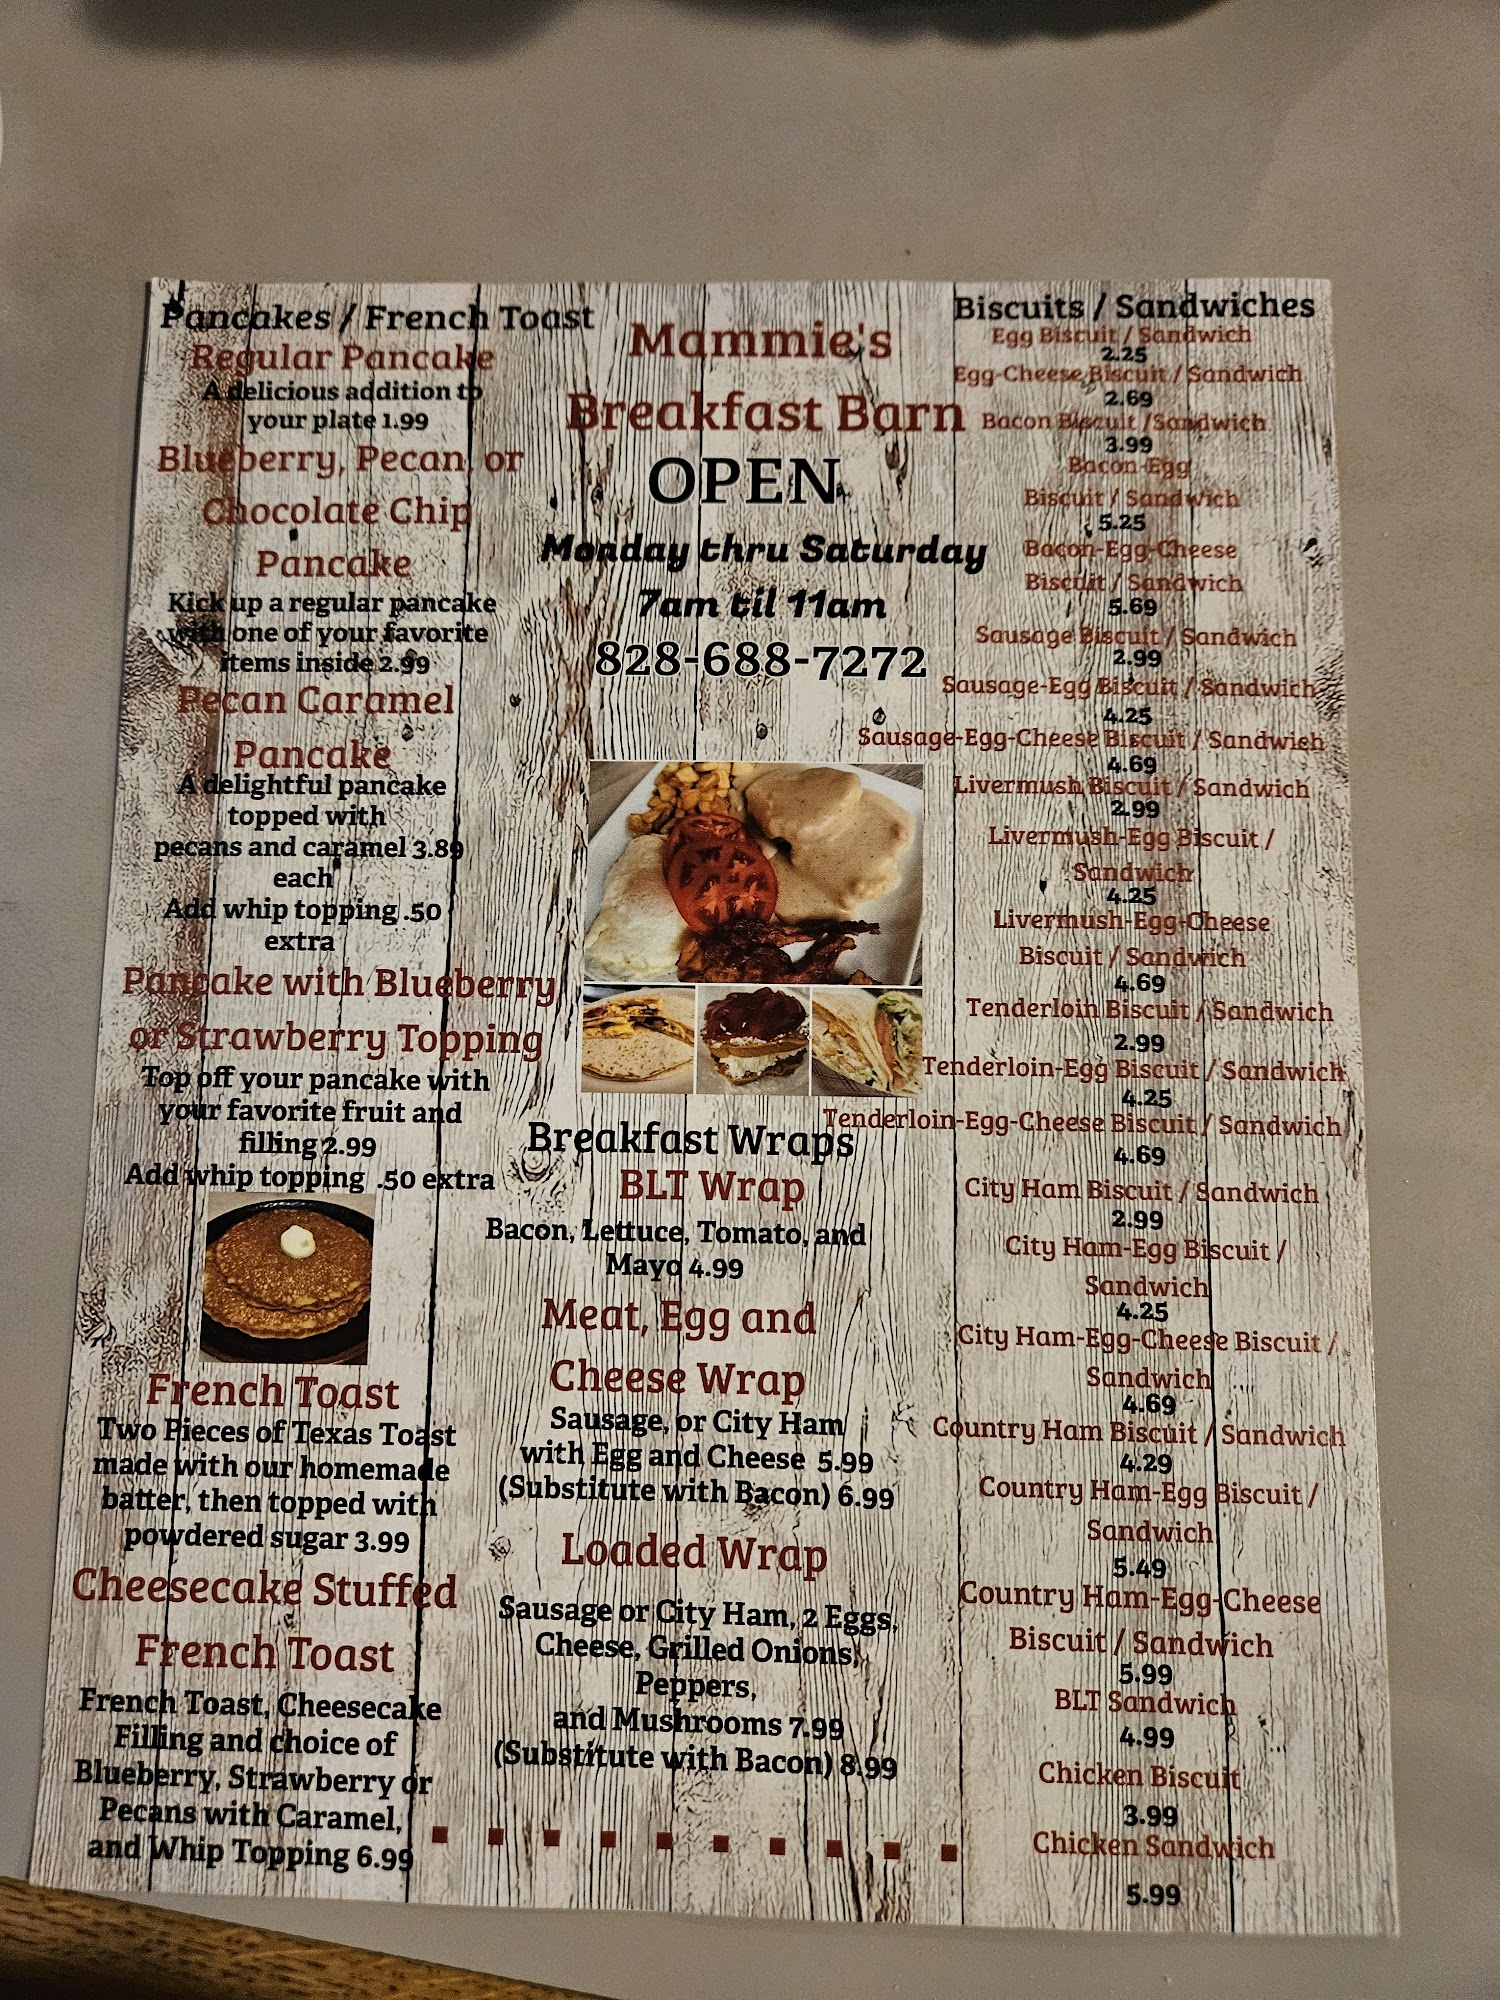 Pancakes / French Toast
Regular Pancake
A delicious addition to
your plate 1.99
Blueberry, Pecan, or
Chocolate Chip
Pancake
Kick up a regular pancake
with one of your favorite
items inside 2.99
Pecan Caramel
Pancake
A delightful pancake
topped with
pecans and caramel 3.89
each
Add whip topping .50
extra
Pancake with Blueberry
or Strawberry Topping
Top off your pancake with
your favorite fruit and
filling 2.99
Add whip topping .50 extra
French Toast
Two Pieces of Texas Toast
made with our homemade
batter, then topped with
powdered sugar 3.99
Cheesecake Stuffed
French Toast
French Toast, Cheesecake
Filling and choice of
Blueberry, Strawberry or
Pecans with Caramel,
and Whip Topping 6.99
Mammie's
Breakfast Barn
OPEN
Monday thru Saturday
7am til 11am
828-688-7272
Breakfast Wraps
BLT Wrap
Bacon, Lettuce, Tomato, and
Mayo 4.99
Meat, Egg and
Cheese Wrap
Sausage, or City Ham
with Egg and Cheese 5.99
(Substitute with Bacon) 6.99
Loaded Wrap
Sausage or City Ham, 2 Eggs,
Cheese, Grilled Onions,
Peppers,
and Mushrooms 7.99
(Substitute with Bacon) 8.99
Biscuits / Sandwiches
Egg Biscuit / Sandwich
2.25
Egg-Cheese Biscuit / Sandwich
2.69
Bacon Biscuit /Sandwich
3.99
Bacon-Egg
Biscuit / Sandwich
5.25
Bacon-Egg-Cheese
Biscuit / Sandwich
5.69
Sausage Biscuit / Sandwich
2.99
Sausage-Egg Biscuit / Sandwich
4.25
Sausage-Egg-Cheese Biscuit / Sandwich
4.69
Livermush Biscuit / Sandwich
2.99
Livermush-Egg Biscuit /
Sandwich
4.25
Livermush-Egg-Cheese
Biscuit / Sandwich
4.69
Tenderloin Biscuit / Sandwich
2.99
Tenderloin-Egg Biscuit / Sandwich
4.25
Tenderloin-Egg-Cheese Biscuit / Sandwich
4.69
City Ham Biscuit / Sandwich
2.99
City Ham-Egg Biscuit /
Sandwich
4.25
City Ham-Egg-Cheese Biscuit /
Sandwich
4.69
Country Ham Biscuit / Sandwich
4.29
Country Ham-Egg Biscuit /
Sandwich
5.49
Country Ham-Egg-Cheese
Biscuit / Sandwich
5.99
BLT Sandwich
4.99
Chicken Biscuit
3.99
Chicken Sandwich
5.99